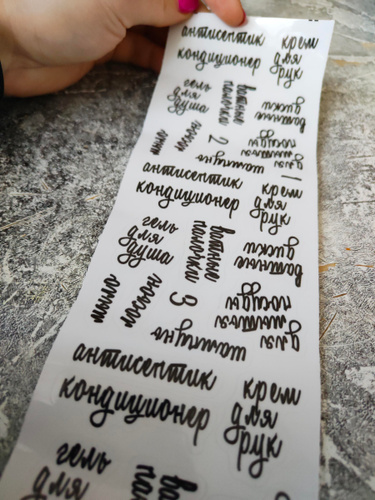 антисептик
кондиционер
крем
для
рук
гель
для
душа
ватные
палочки
ватные
диски
лосьон
мыло
2
для
мытья
посуды
шампунь
1
антисептик
кондиционер
крем
для
рук
гель
для
душа
ватные
палочки
ватные
диски
мыло
лосьон
3
для
мытья
посуды
шампунь
антисептик
кондиционер
крем
для
рук
гель
для